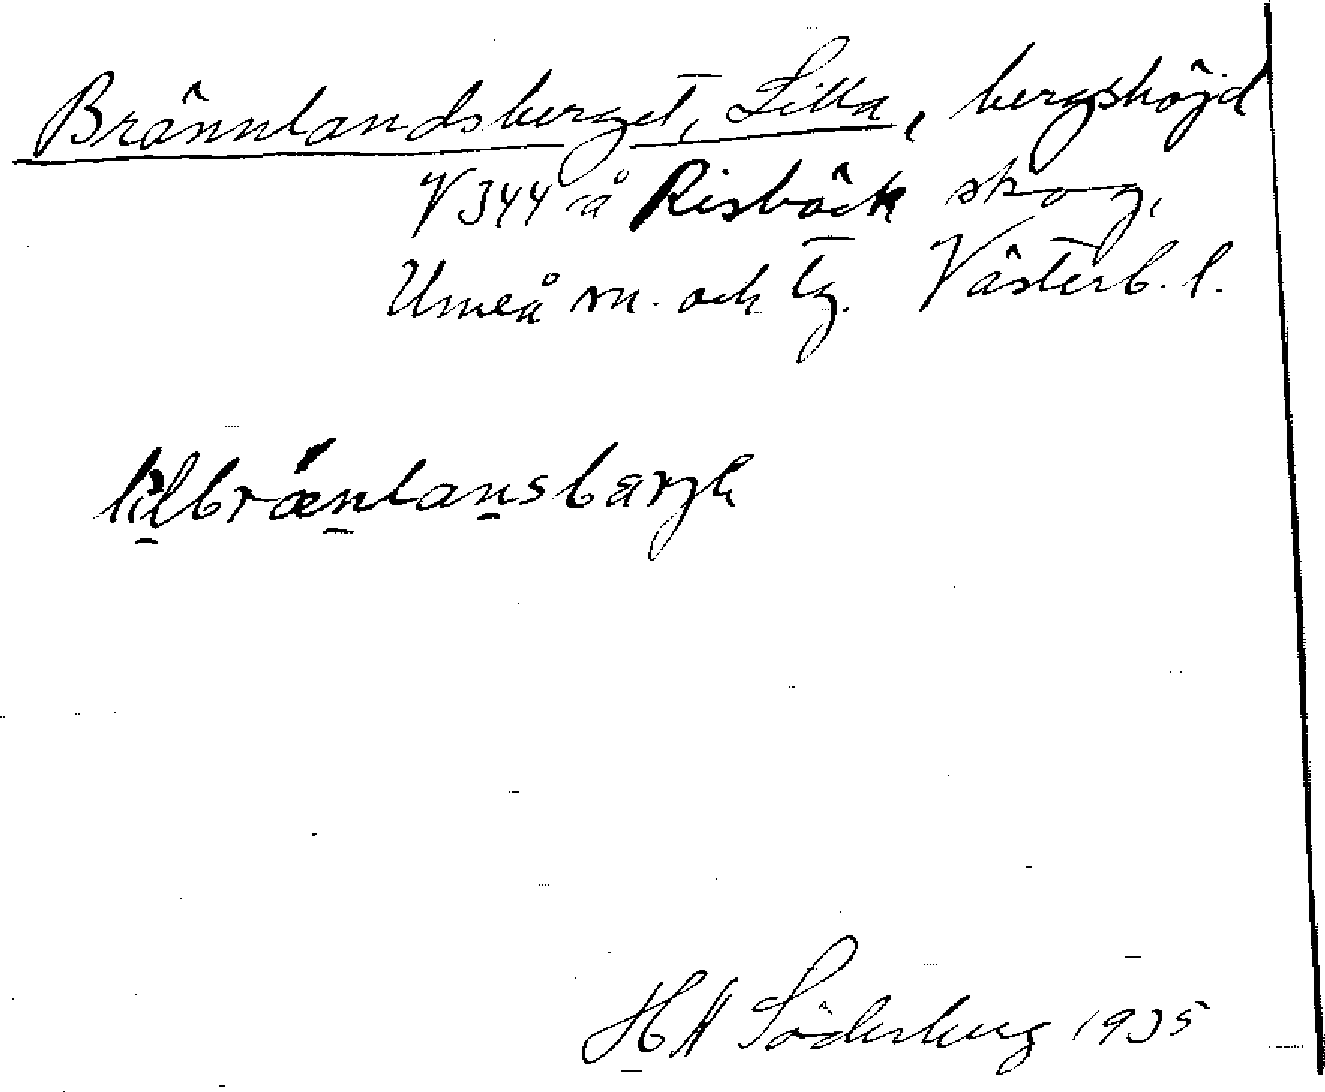 Brännlandsberget, Lilla, bergshöjd
V 344 å Risbäck skog,
Umeå sn. och tg. Västerb. l.
lilbrænlansbärje
H Söderberg 1935